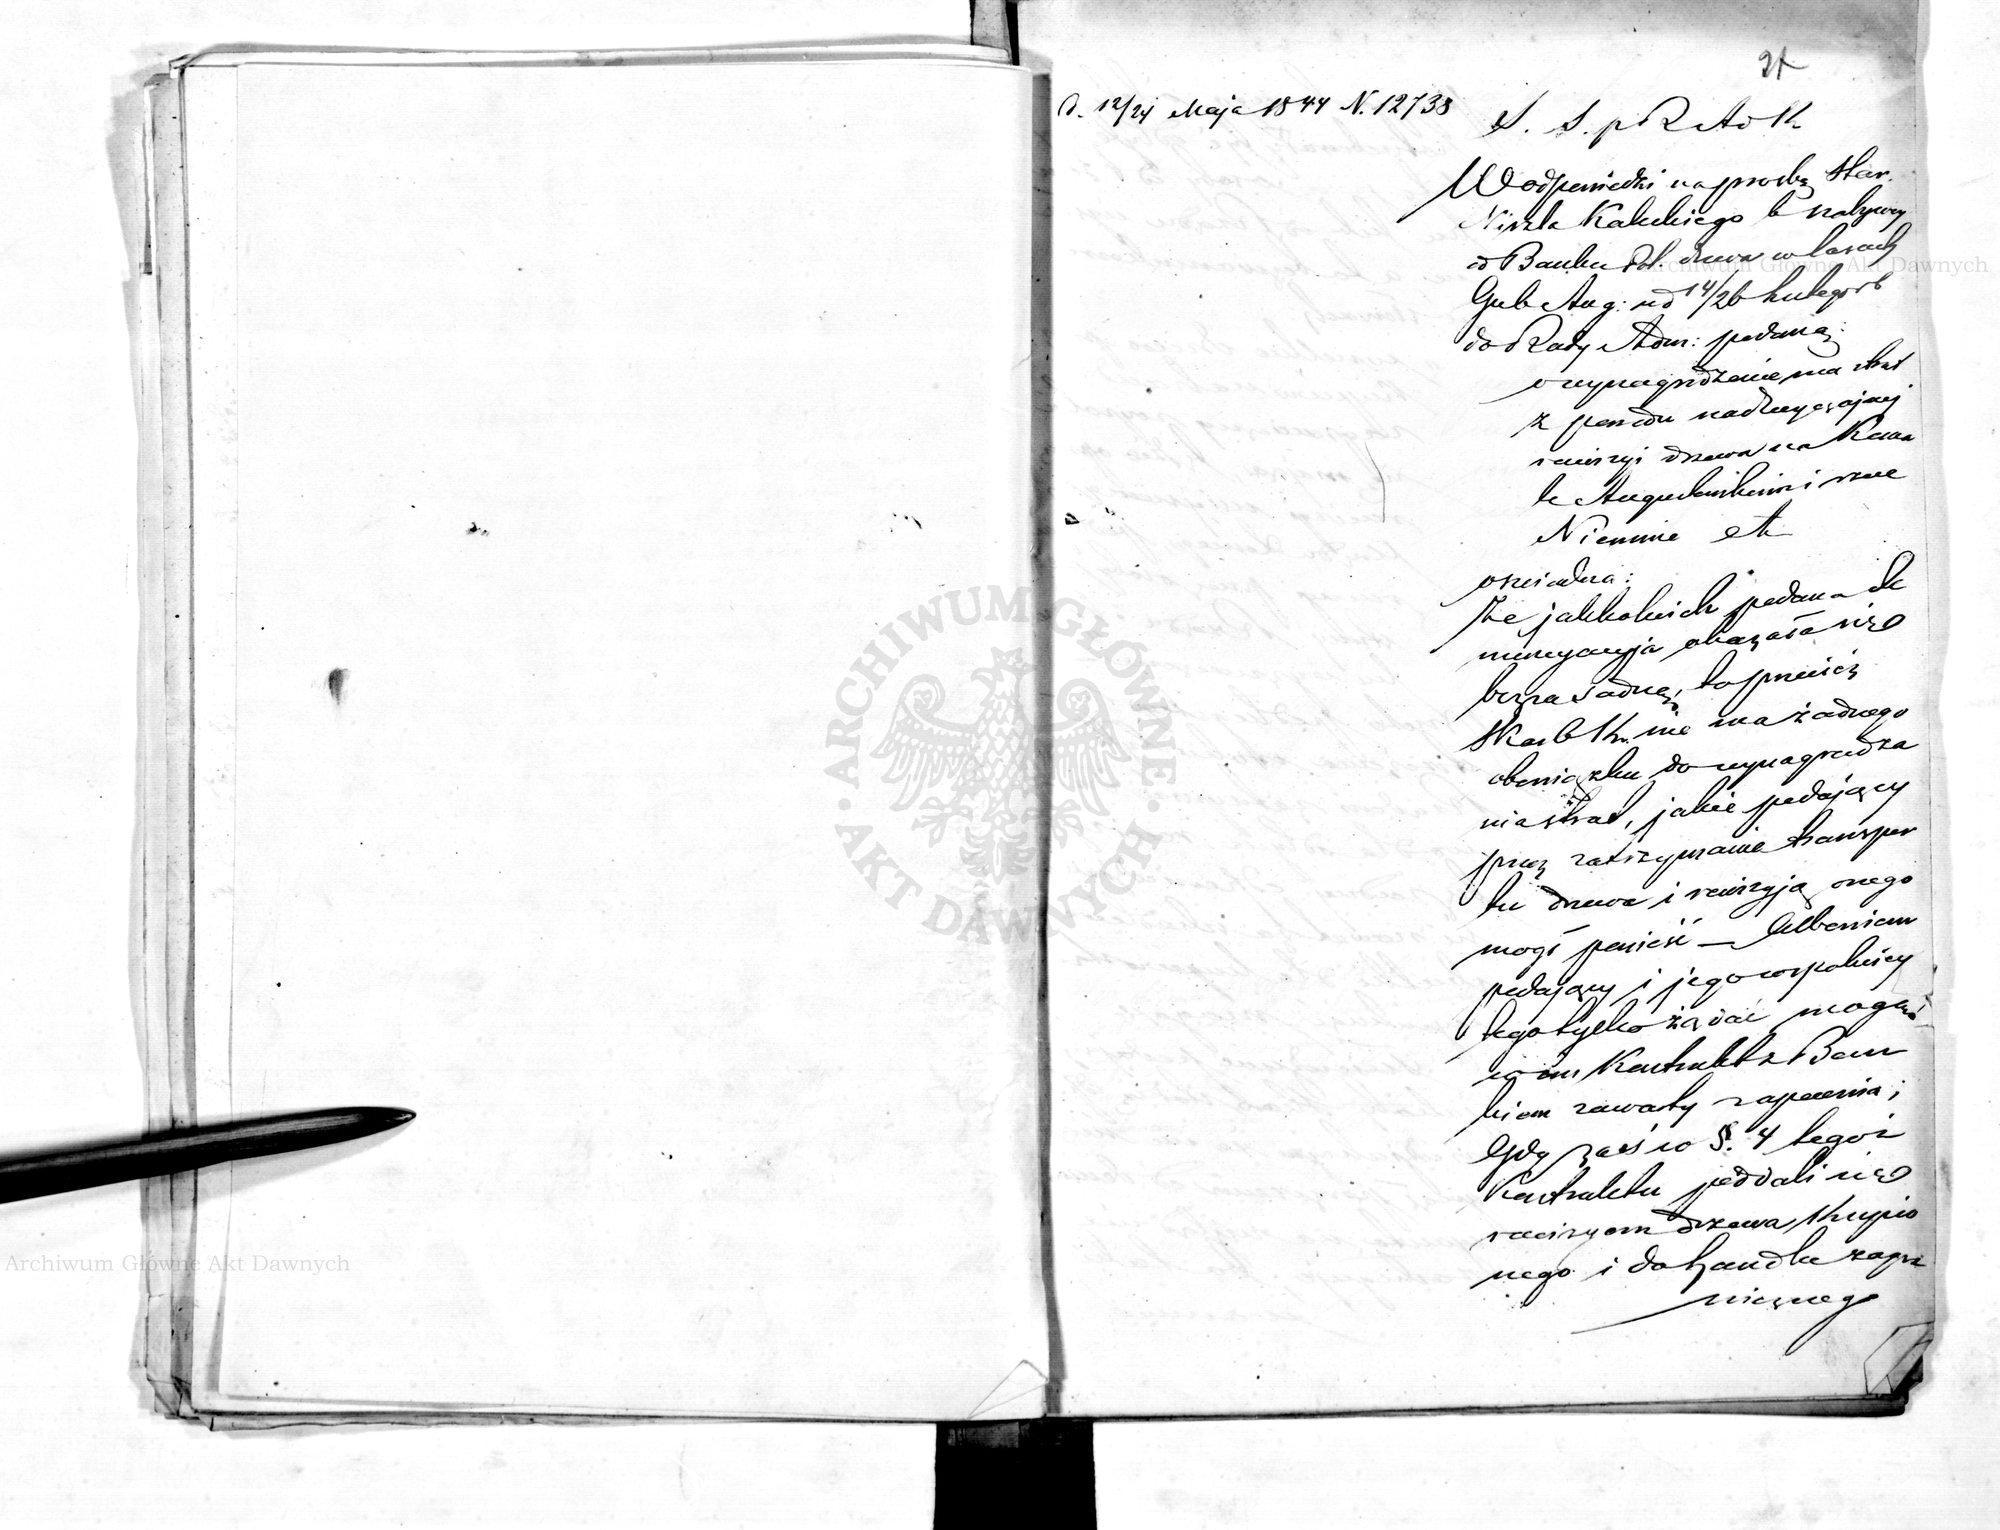 21
d. 12/24 Maja 1844 N. 12738
S. S. p R A d K
W odpowiedzi na prosbę Star.
Kaluskiego b nabywcy
od Banku Pol. drzewa w lasach
Gub Aug: od 14/26 Lutego r b
do Rady Adm: podaną:
o wynagrodzenie ma strat
z powodu nadzwyczajnej
rewizyi drzewa na Kana
le Augustowskim i rzece
Niemnie etc
oświadcza:
że jakkolwiek podana de
nuncyacyja okazała się
bezzasadną, to przecież
Skarb Kr. nie ma żadnego
obowiązku do wynagradza
nia strat, jakie podający
przez zatrzymanie transpor
tu drzewa i rewizyją onego
mógł ponieść — Albowiem
podający i jego wspólnicy
tego tylko żądać mogą, co
im Kontrakt z Ban
kiem zawarty zapewnia;
Gdy zaś w §. 4 tegoż
Kontraktu poddali się
rewizyom drzewa skupio
nego i do handlu zaprz
nicznego
Archiwum Główne Akt Dawnych
ARCHIWUM GŁÓWNE AKT DAWNYCH
Archiwum Główne Akt Dawnych